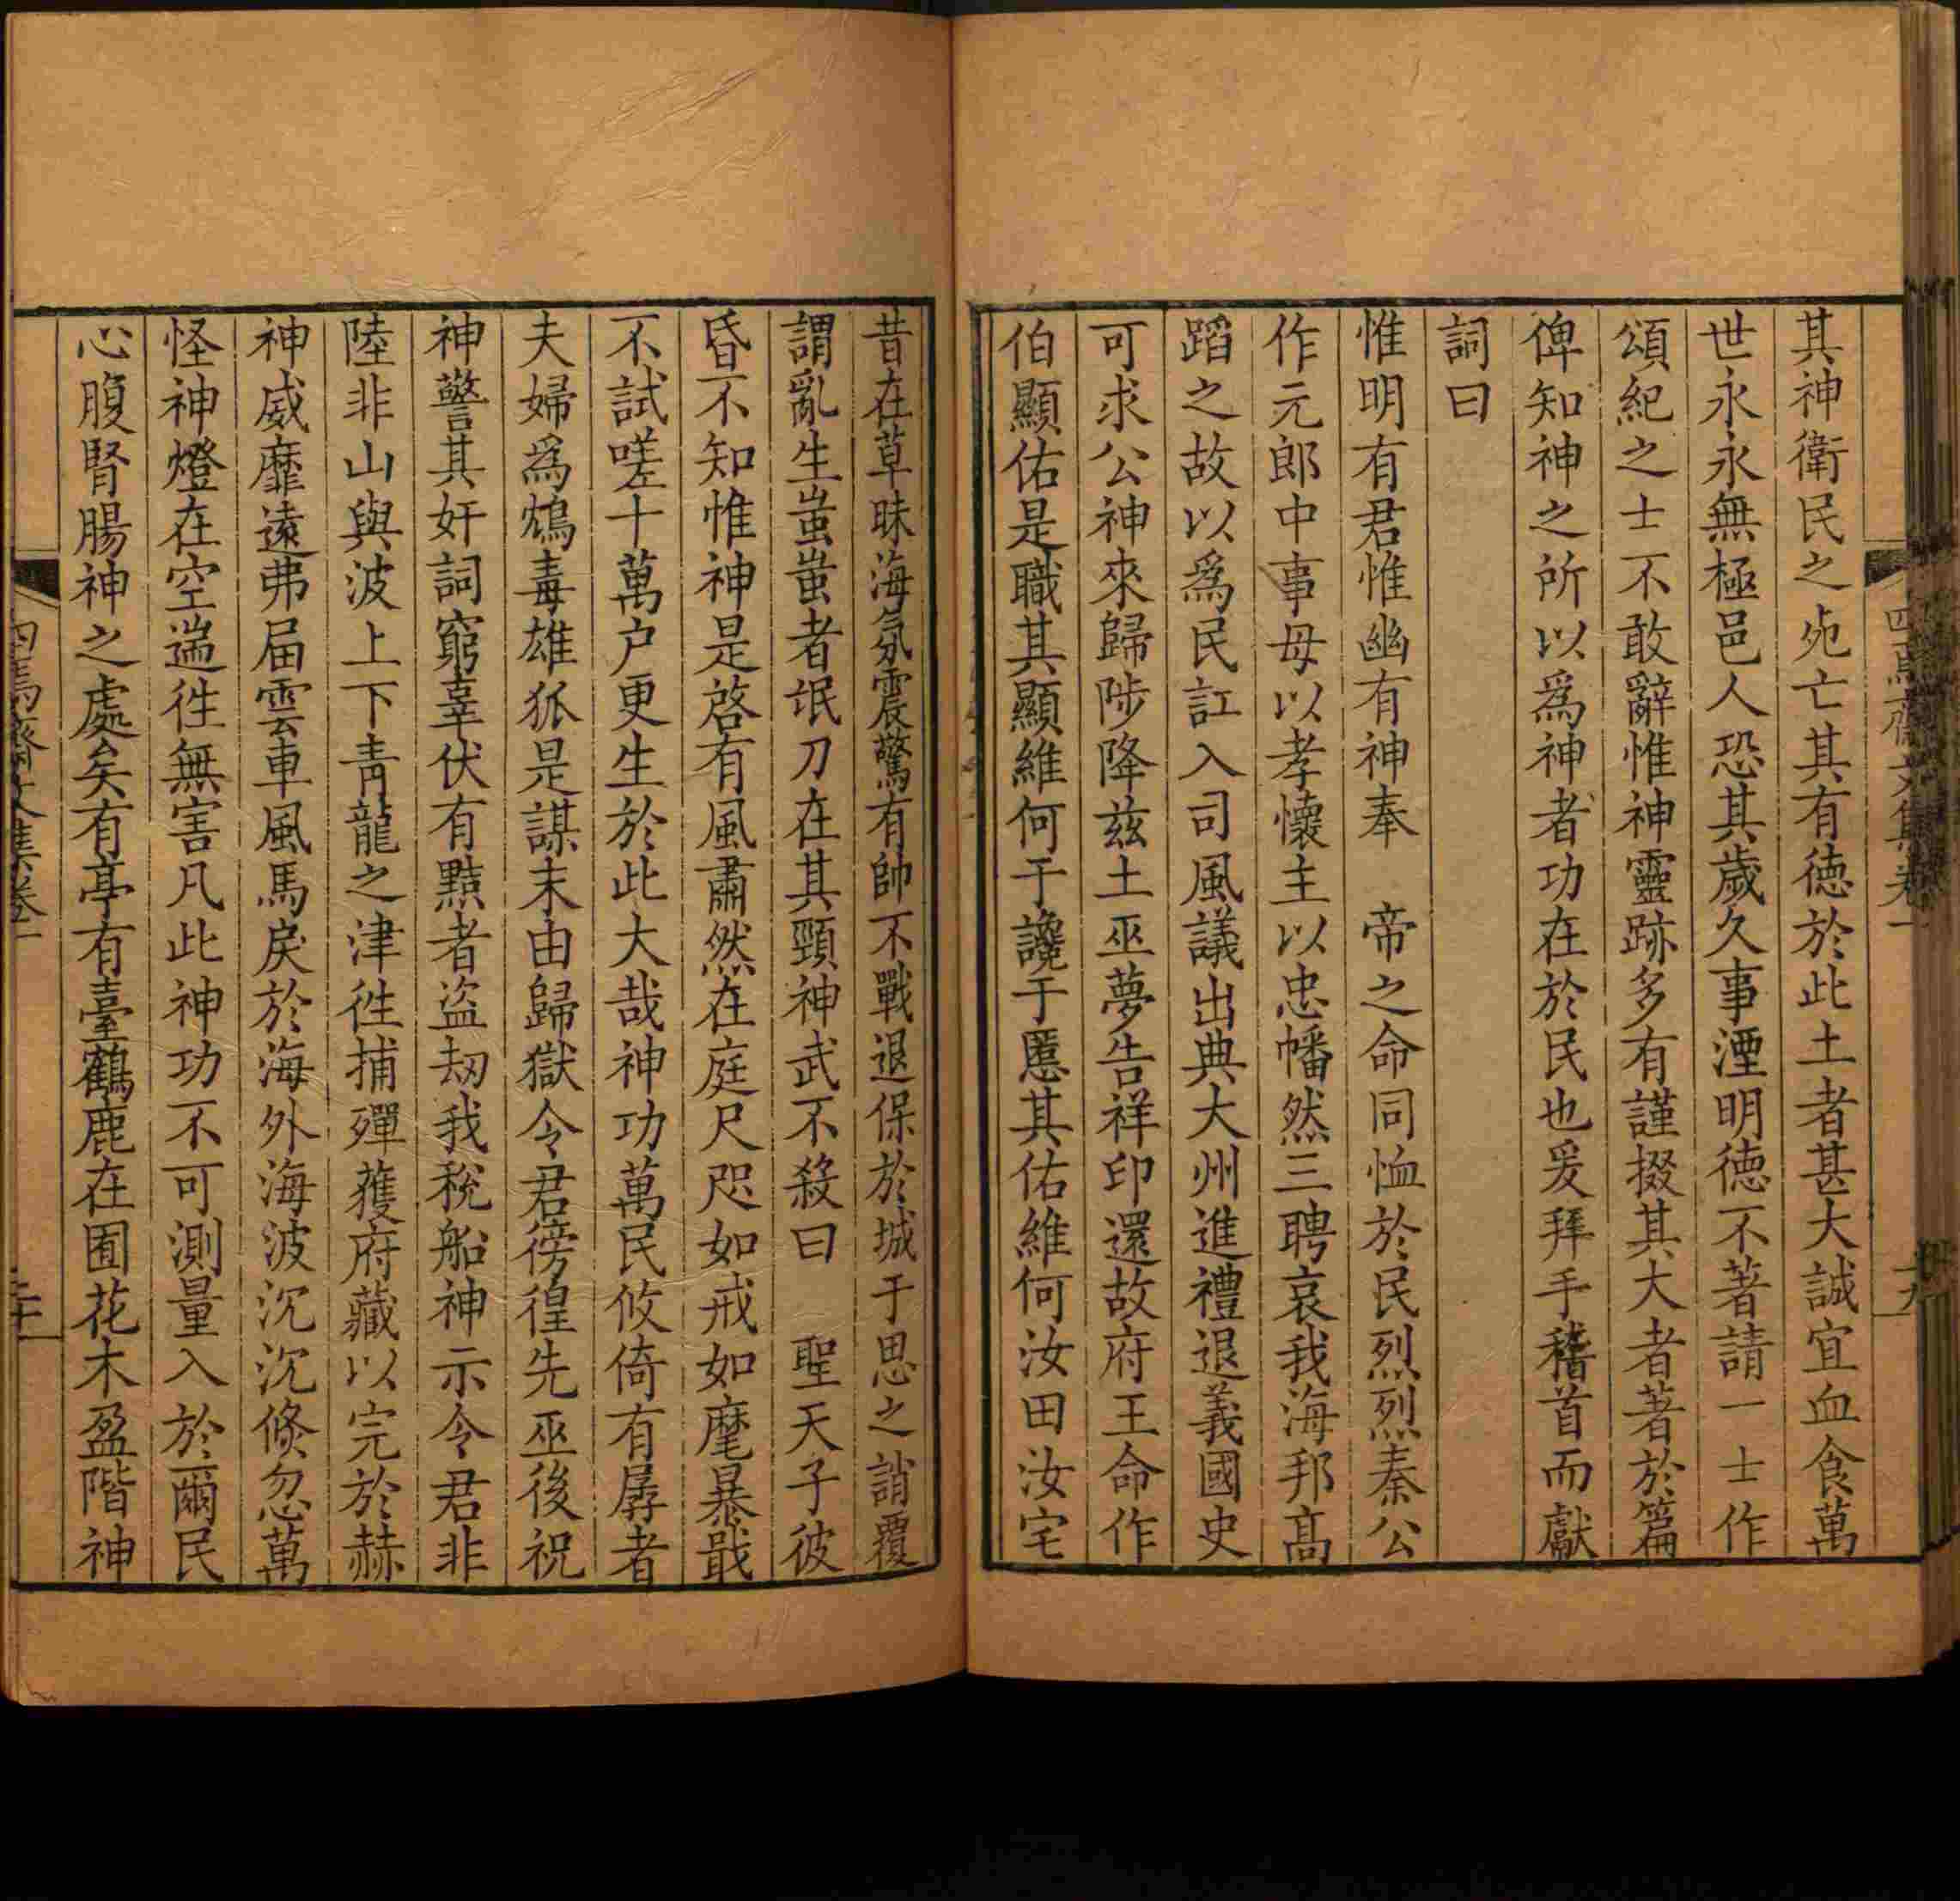 其神衛民之䘮亡其有徳於此土者甚大誠宜血食萬
世永永無極邑人恐其歲久事湮明徳不著請一士作
頌紀之士不敢辭惟神靈跡多有謹掇其大者著於篇
俾知神之所以爲神者功在於民也爰拜手稽首而獻
詞曰
惟明有君惟幽有神奉 帝之命同恤於民烈烈秦公
作元郎中事母以孝懷主以忠幡然三聘哀我海邦髙
蹈之故以爲民訌入司風議出典大州進禮退義國史
可求公神來歸陟降兹土巫夢告祥印還故府王命作
伯顯佑是職其顯維何于讒于慝其佑維何汝田汝宅
昔在草昧海氛震驚有帥不戰退保於城于思之誚覆
謂亂生蚩蚩者氓刀在其頸神武不殺曰 聖天子彼
昏不知惟神是啓有風肅然在庭尺咫如戒如麾暴戢
不試嗟十萬户更生於此大哉神功萬民攸倚有孱者
夫婦爲鴆毒雄狐是謀末由歸獄令君徬徨先巫後祝
神警其奸詞窮辜伏有黠者盜刼我稅船神示令君非
陸非山與波上下青龍之津徃捕殫蒦府藏以完於赫
神威靡遠弗届雲車風馬戾於海外海波沉沉倏忽萬
怪神燈在空遄徃無害凡此神功不可測量入於爾民
心腹腎腸神之處矣有亭有臺鶴鹿在囿花木盈階神
四馬齋文集卷一
十九
四馬齋文集卷一
二十